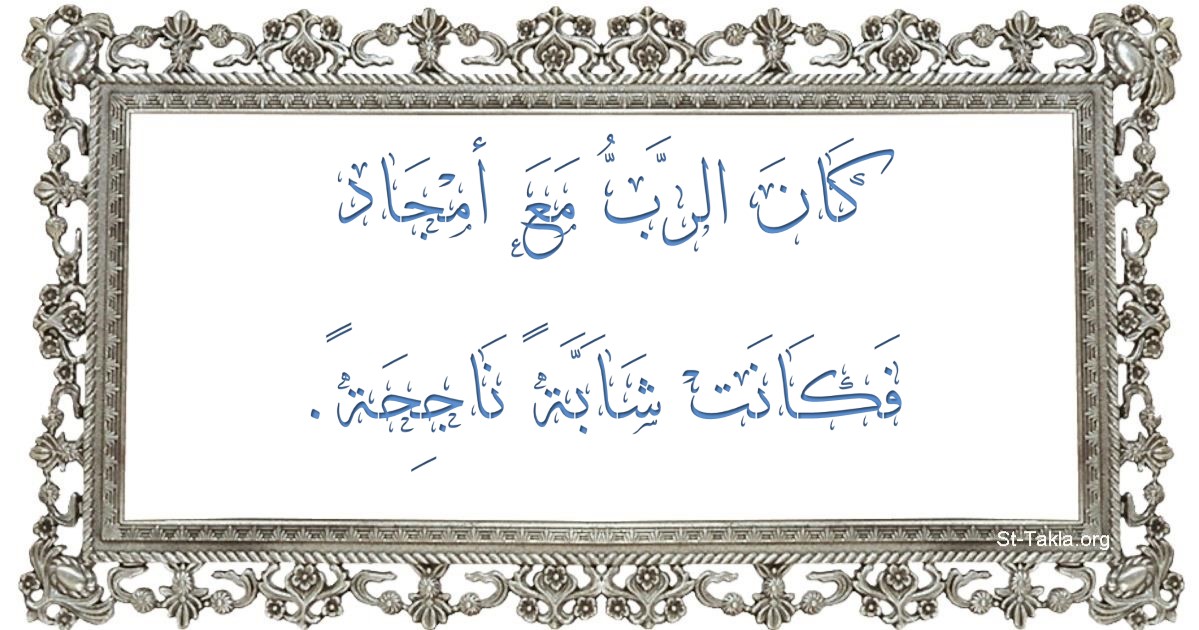 كَانَ الرَّبُّ مَعَ أمْجَاد
فَكَانَتْ شَابَّةً نَاجِحَةً.
St-Takla.org